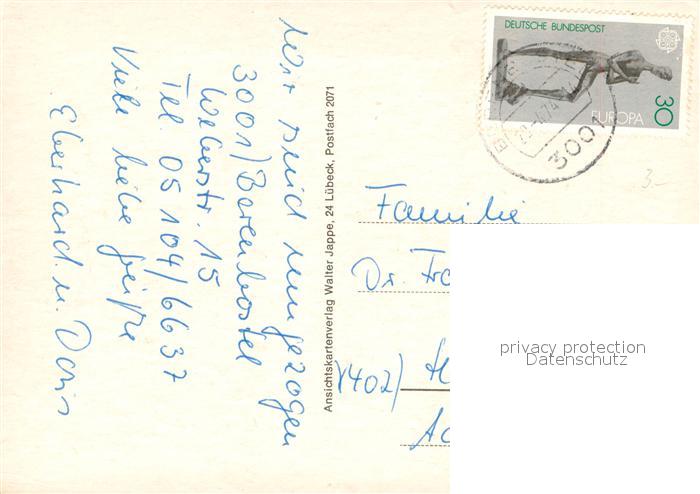 Wir sind umgezogen
3001) Barenbostel
Weberstr. 15
Tel. 05104/6637
Viele liebe Grüße
Eberhard u. Doris
Ansichtskartenverlag Walter Jappe, 24 Lübeck, Postfach 2071
DEUTSCHE BUNDESPOST
EUROPA
30
3001
3.-
Familie
Dr.
privacy protection
Datenschutz